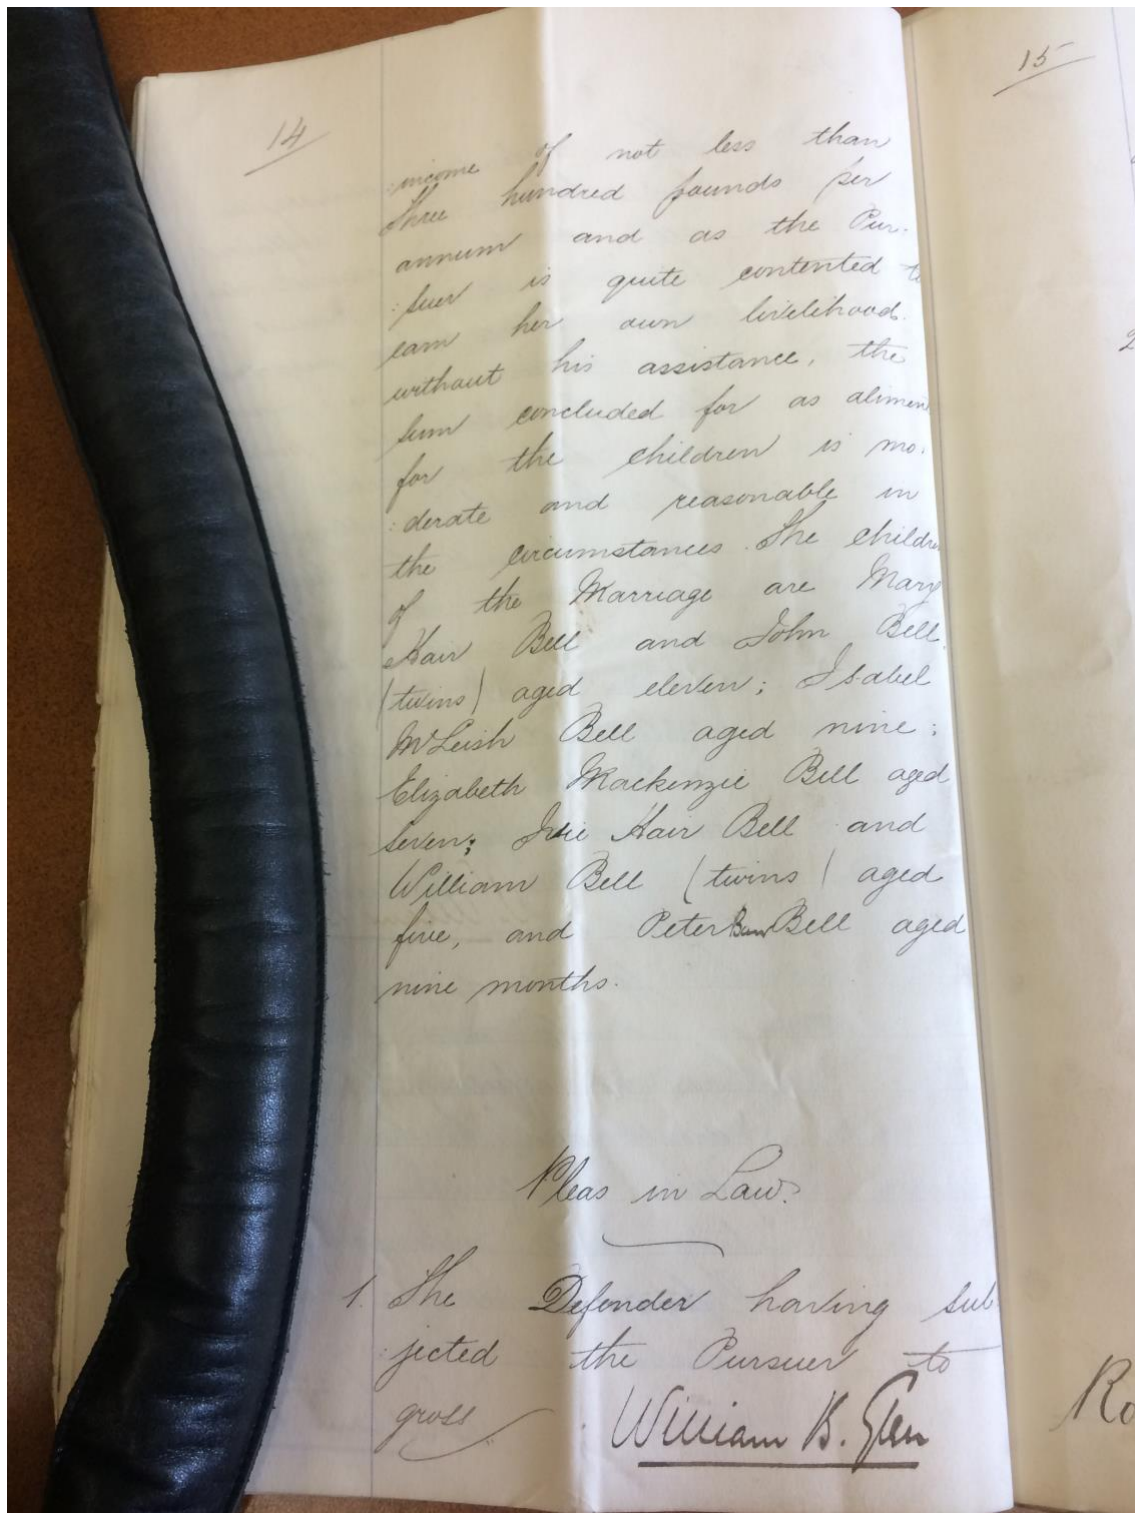 14
:income of not less than
three hundred pounds per
annum and as the Pur:
:suer is quite contented to
earn her own livelihood
without his assistance, the
sum concluded for as aliment
for the children is mo:
:derate and reasonable in
the circumstances. The children
of the Marriage are Mary
Hair Bell and John Bell
(twins) aged eleven; Isabel
McLeish Bell aged nine;
Elizabeth Mackenzie Bell aged
seven; Hair Bell and
William Bell (twins) aged
five, and Peter Bell aged
nine months.
Pleas in Law.
1. The Defender having sub
:jected the Pursuer to
gross
William B. Glen
15
2
Ro